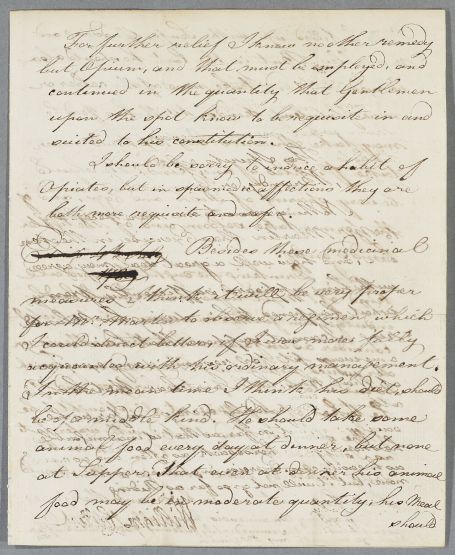 For further relief I know no other remedy
but Opium, and that must be employed, and
continued in the quantity that Gentlemen
upon the spot know to be requisite in and
suited to his constitution.
I should be sorry to induce a habit of
Opiates, but in spasmodic affections they are
both more requisite and safer.
Besides these medicinal
measures I think it will be very proper
for Mr. to observe a regimen which
I could direct better if I was more fully
acquainted with his ordinary management.
In the mean time I think his diet, should
be of a middle kind. He should take some
animal food every day at dinner, but none
at Supper. That even at dinner his animal
food may be in moderate quantity, his Meal
should